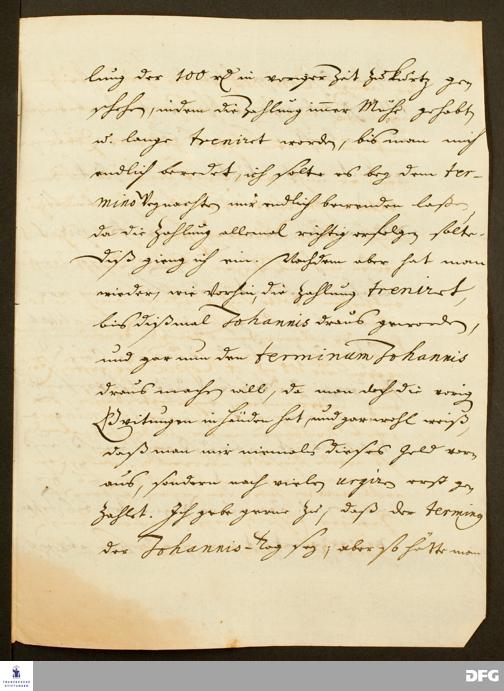 lung der 100 rl in voriger Zeit zu kurtz ge¬
schehen, indem die Zahlung immer Mühe gehabt
u. lange treniret worden, bis man mich
endlich beredet, ich solte es bey dem ter¬
mino Weynachten nur endlich bewenden laßen,
da die Zahlung allemal richtig erfolgen solte.
Diß gieng ich ein. Nachdem aber hat man
wieder, wie vorhin, die Zahlung treniret,
bis dißmal Johannis draus geworden,
und gar nun den terminum Johannis
draus machen will, da man doch die vorig
Qvitungen in Händen hat, und gar wohl weiß,
daß man mir niemals dieses Geld vorn
aus, sondern nach vielen urgiren erst ge¬
zahlet. Ich gebe gerne zu, daß der terminus
der Johannis-Tag sey, aber so hätte man
FRANCKESCHE STIFTUNGEN
DFG